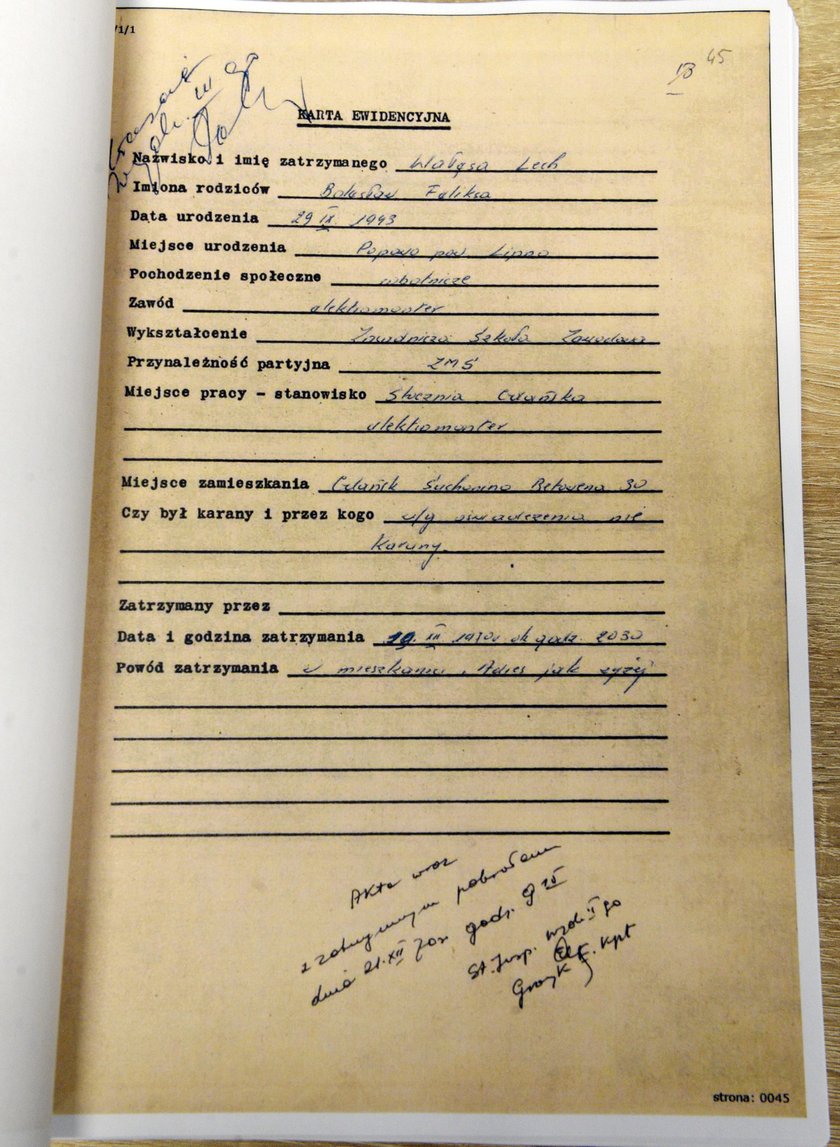 /1/1
13 45
KARTA EWIDENCYJNA
Nazwisko i imię zatrzymanego Wałęsa Lech
Imiona rodziców Bolesław Feliksa
Data urodzenia 29 IX 1943
Miejsce urodzenia Popowo pow. Lipno
Pochodzenie społeczne robotnicze
Zawód elektromonter
Wykształcenie Zasadnicza Szkoła Zawodowa
Przynależność partyjna ZMS
Miejsce pracy - stanowisko Stocznia Gdańska
elektromonter
Miejsce zamieszkania Gdańsk Suchanino Betovena 30
Czy był karany i przez kogo w/g oświadczenia nie
karany.
Zatrzymany przez
Data i godzina zatrzymania 19 XII 1970r ok godz. 2030
Powód zatrzymania w mieszkaniu. Adres jak wyżej
Akta wraz
z zatrzymanym pobrałem
dnia 21.XII 70r godz. 9
St. Insp. Wydz. II go
Kpt
strona: 0045